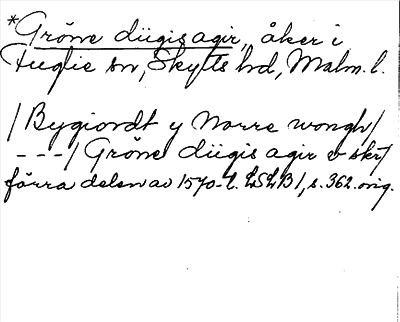 *Gröne diigis agir, åker i
Fuglie sn, Skytts hd, Malm. l.
/Bygiordt y Norre wongh/
---/Gröne diigis agir v skr/
förra delen av 1570-t. LSLB1, s. 362. orig.